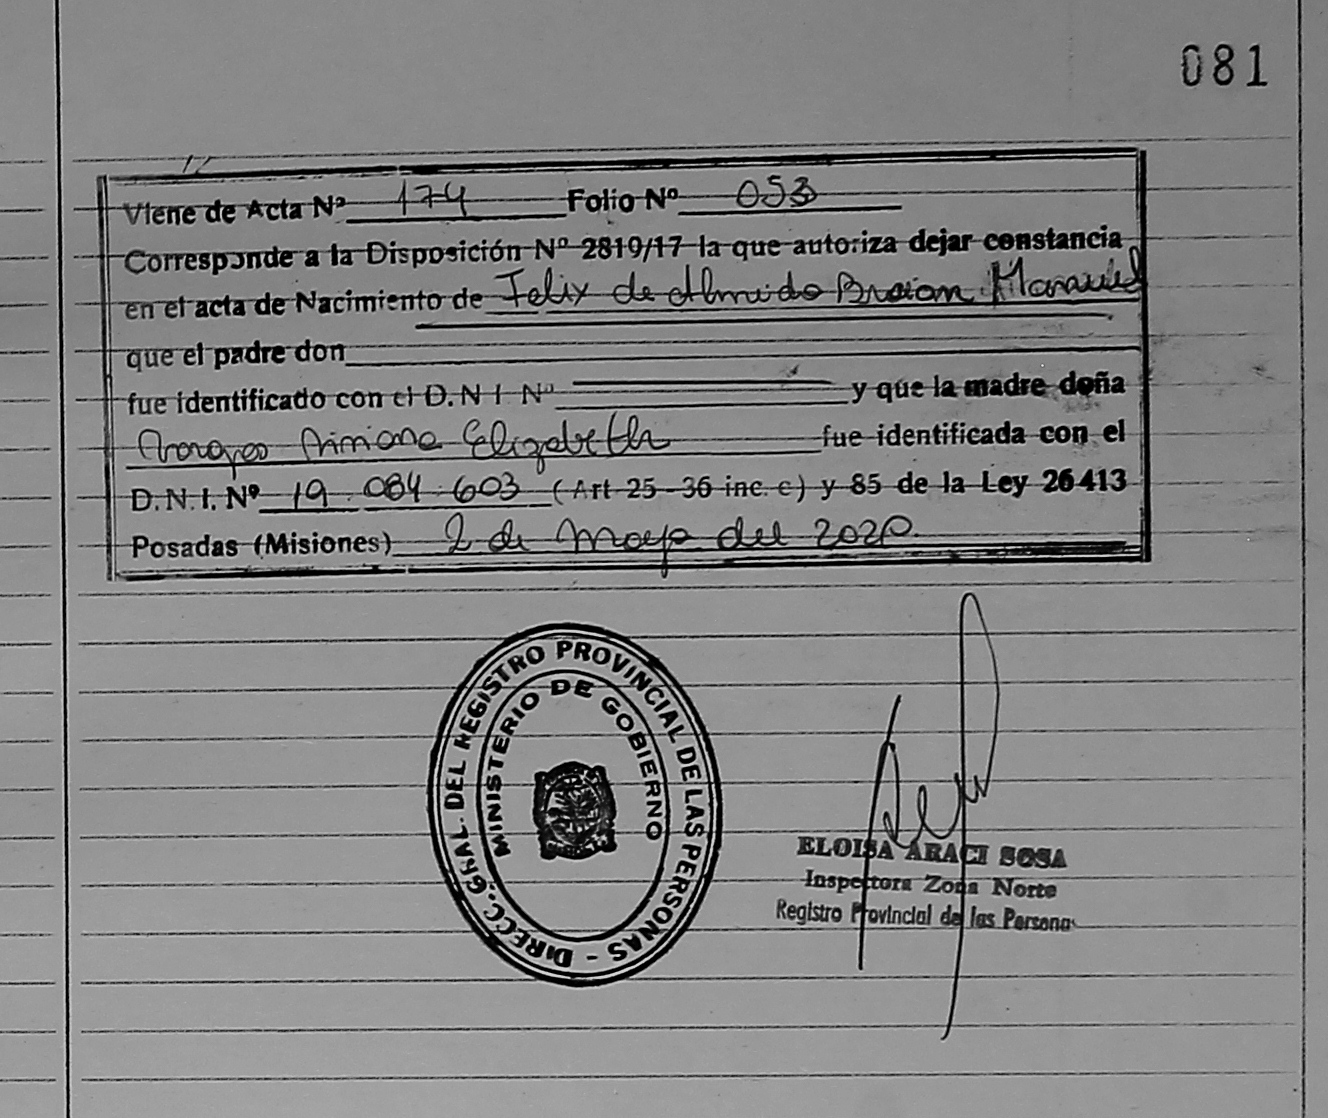 081
Viene de Acta Nº 174 Folio Nº 053
Corresponde a la Disposición Nº 2819/17 la que autoriza dejar constancia
en el acta de Nacimiento de Felix de Almeida Braian Manuel
que el padre don
fue identificado con el D.N.I Nº y que la madre doña
Elizabeth fue identificada con el
D.N.I. Nº 19.084.603 (Art 25-36 inc. c) y 85 de la Ley 26413
Posadas (Misiones) 2 de Mayo del 2020.
DIRECC. GRAL. DEL REGISTRO PROVINCIAL DE LAS PERSONAS -
MINISTERIO DE GOBIERNO
ELOISA ARACI SOSA
Inspectora Zona Norte
Registro Provincial de las Personas